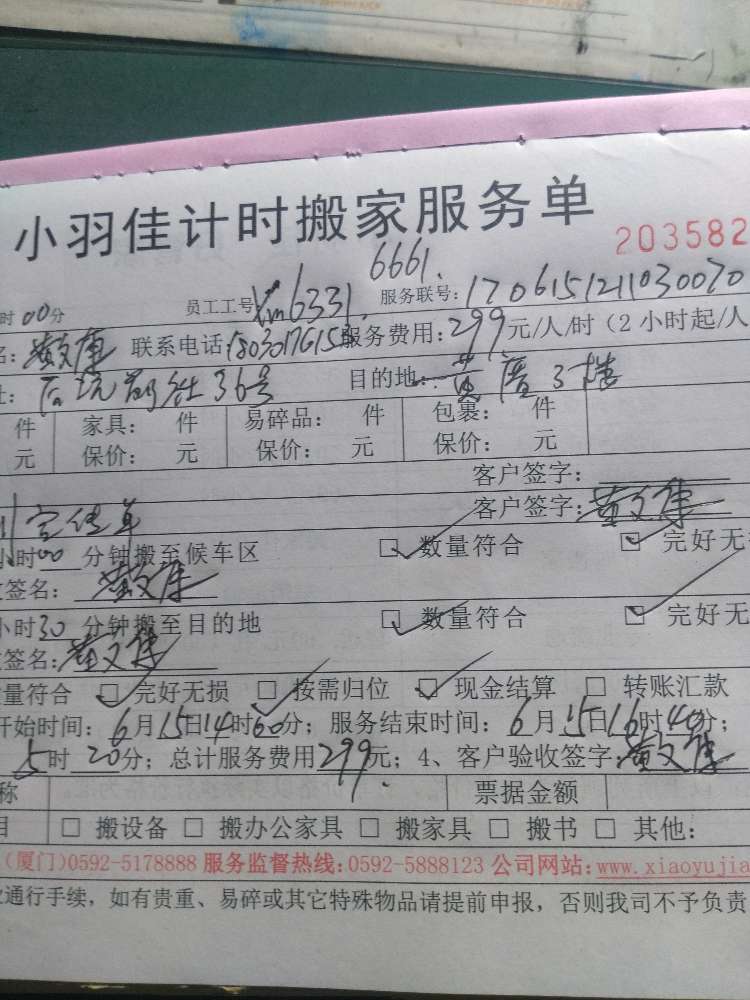 小羽佳计时搬家服务单
203582
6661.
时00分 员工工号 Xm6331. 服务联号:170615121103 0070
名:黄文康 联系电话 服务费用:299元/人/时(2小时起/人
址: 社36号 目的地: 3楼
件 家具: 件 易碎品: 件 包裹: 件
元 保价: 元 保价: 元 保价: 元
客户签字:
客户签字:黄文康
小时00分钟搬至候车区 ☑ 数量符合 ☑ 完好无
签名:黄文康
小时30分钟搬至目的地 ☑ 数量符合 ☑ 完好无
签名:黄文康
量符合 ☑ 完好无损 ☑ 按需归位 ☑ 现金结算 □ 转账汇款
开始时间:6月15日14时60分;服务结束时间:6月15日16时40分;
5时20分;总计服务费用299元;4、客户验收签字:黄文康
称 票据金额
目 □ 搬设备 □ 搬办公家具 □ 搬家具 □ 搬书 □ 其他:
(厦门)0592-5178888 服务监督热线:0592-5888123 公司网站:www.xiaoyujia
通行手续,如有贵重、易碎或其它特殊物品请提前申报,否则我司不予负责